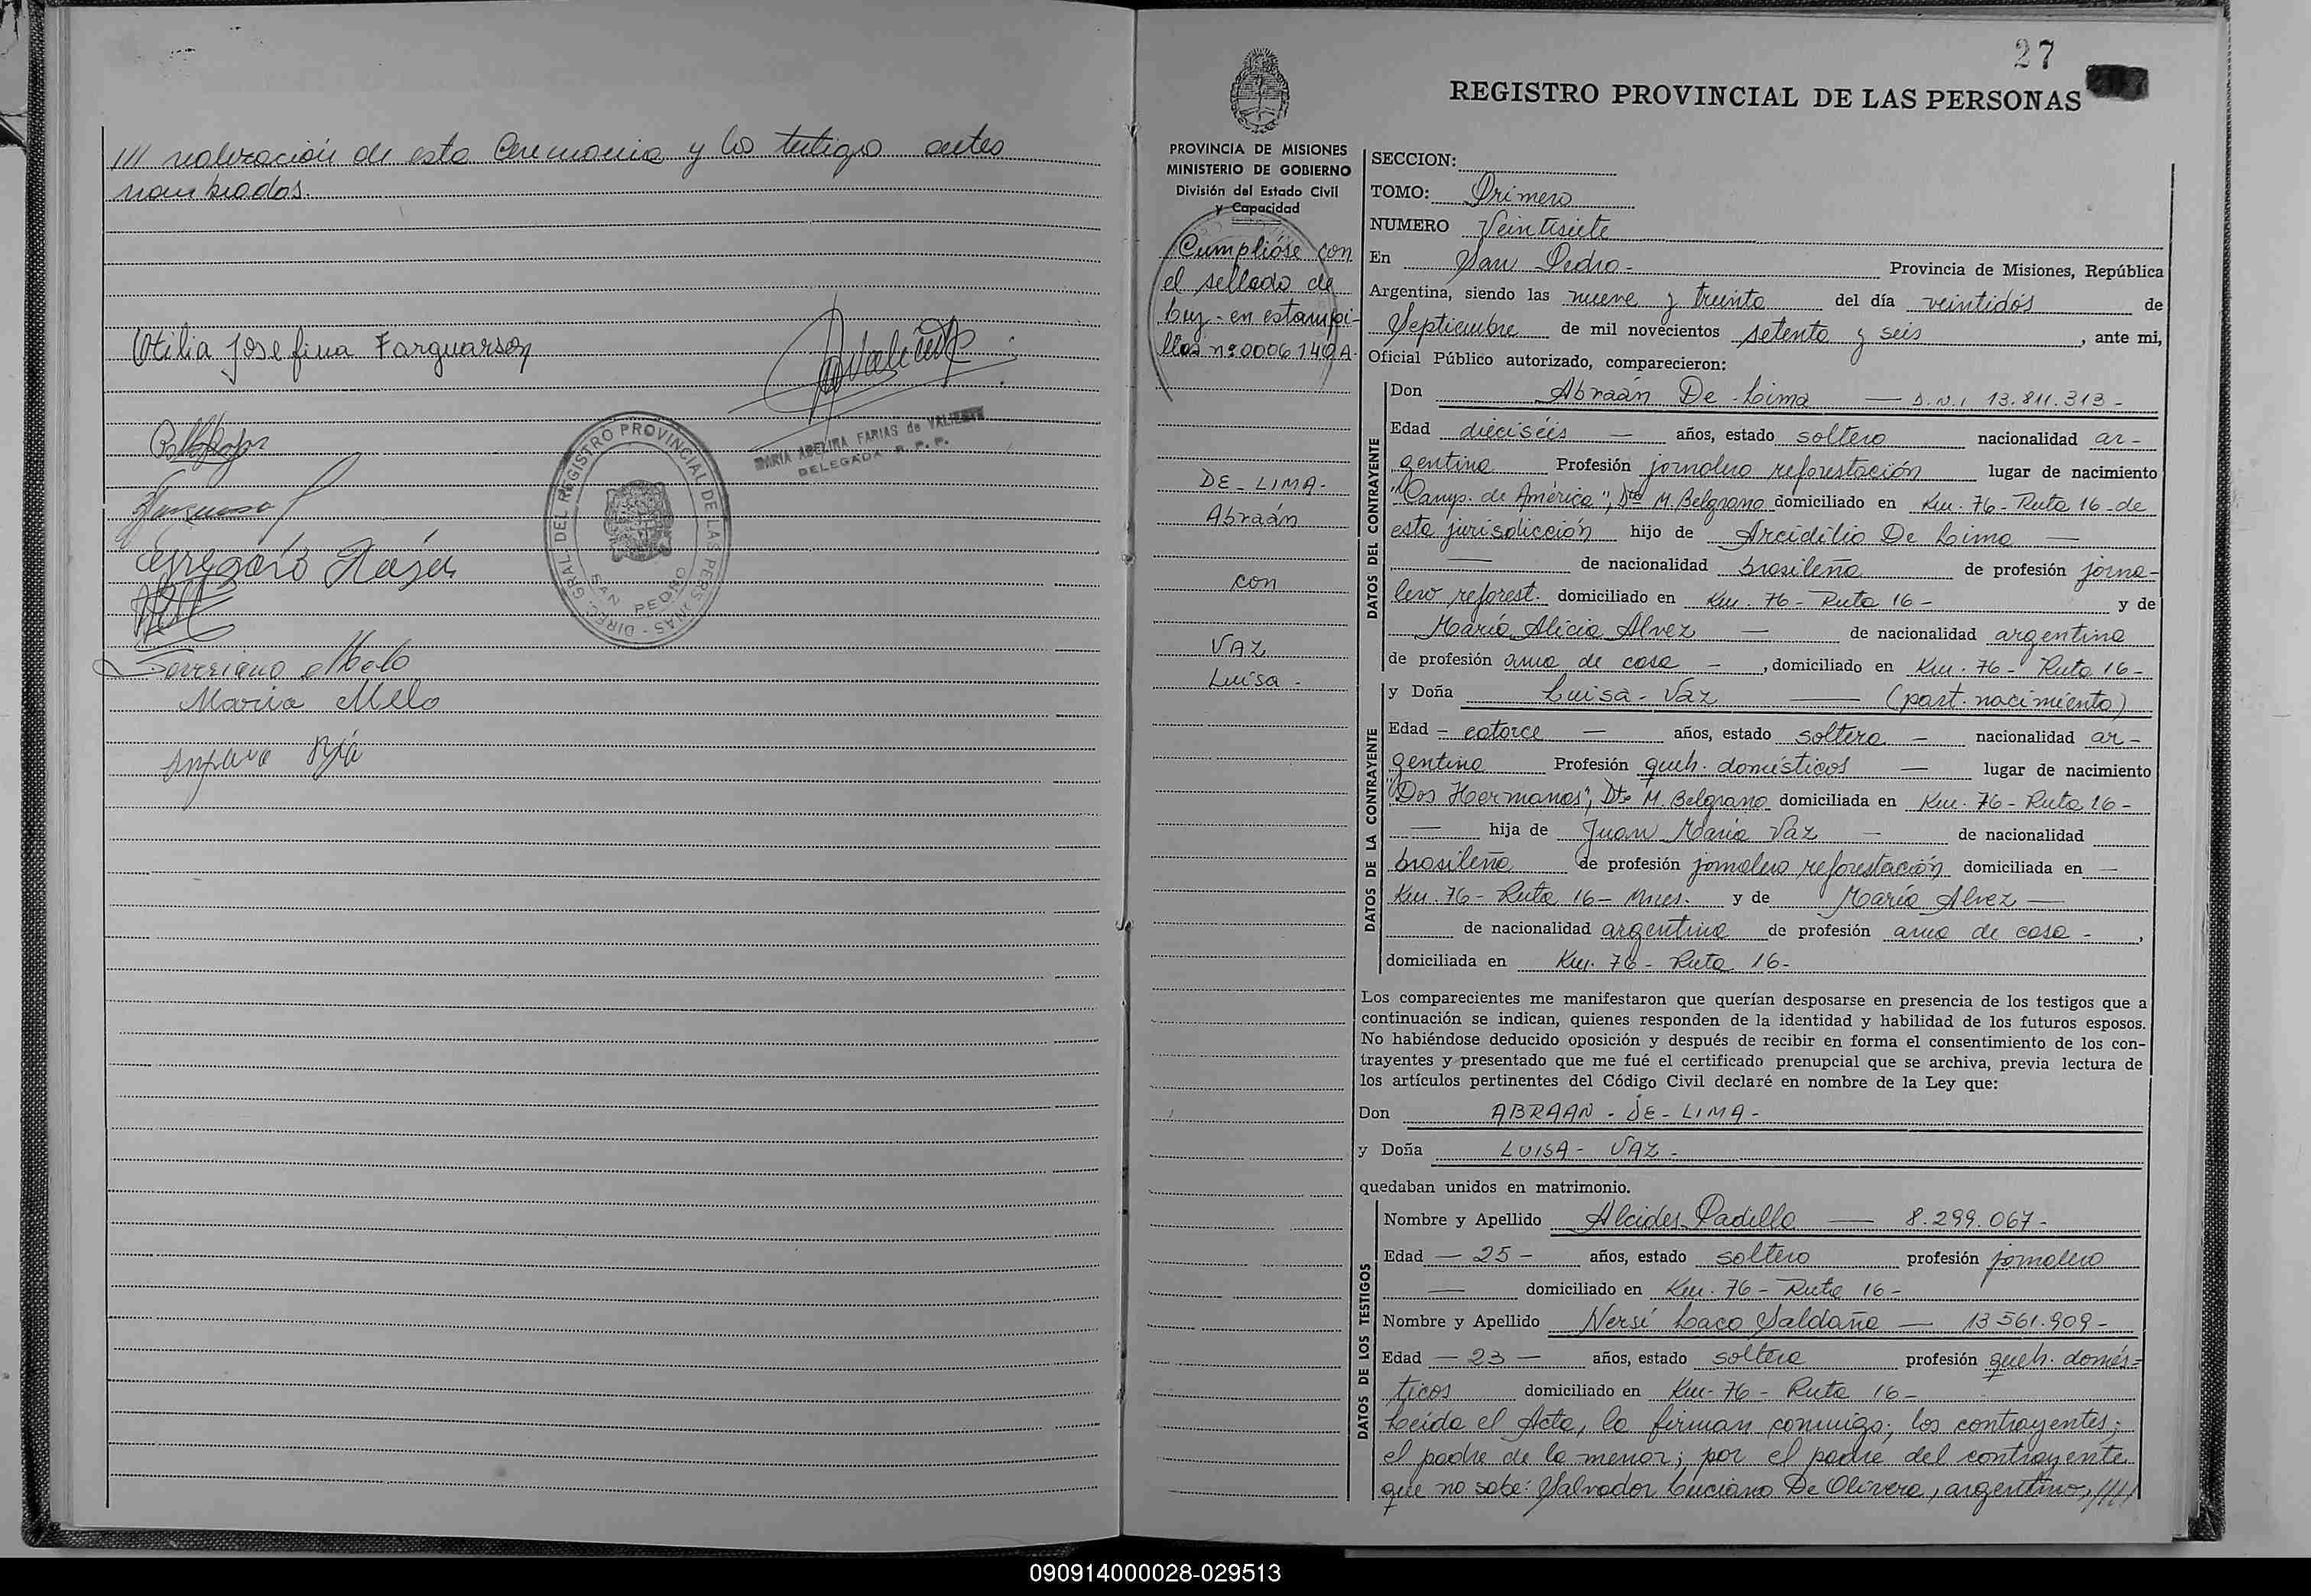 /// realización de esta Ceremonia y los testigos antes
nombrados.
Otilia Josefina Farguarson
MARIA ABELIRA FARIAS de VALIENTE
DELEGADA R. P. P.
DIREC. GRAL. DEL REGISTRO PROVINCIAL DE LAS PERSONAS - SAN PEDRO
Gregorio
Soveriano Melo
Maria Melo
27
REGISTRO PROVINCIAL DE LAS PERSONAS
PROVINCIA DE MISIONES
MINISTERIO DE GOBIERNO
División del Estado Civil
y Capacidad
Cumplióse con
el sellado de
Ley - en estampi-
llas nº 0006140A.
DE - LIMA -
Abraán
con
VAZ
Luisa -
SECCION:
TOMO: Primero
NUMERO Veintisiete
En San Pedro - Provincia de Misiones, República
Argentina, siendo las nueve y treinta del día veintidós de
Septiembre de mil novecientos setenta y seis, ante mi,
Oficial Público autorizado, comparecieron:
DATOS DEL CONTRAYENTE
Don Abraán De - Lima — D.N.I 13.811.313 -
Edad dieciséis — años, estado soltero nacionalidad ar-
gentina Profesión jornalero reforestación lugar de nacimiento
"Camp. de América", Dto M. Belgrano domiciliado en Km. 76 - Ruta 16 - de
esta jurisdicción hijo de Arcidilio De Lima —
— de nacionalidad brasileña de profesión jorna-
lero reforest. domiciliado en Km. 76 - Ruta 16 - y de
María Alicia Alvez — de nacionalidad argentina
de profesión ama de casa - , domiciliado en Km. 76 - Ruta 16 -
DATOS DE LA CONTRAYENTE
y Doña Luisa - Vaz — (part. nacimiento)
Edad - catorce — años, estado soltera - nacionalidad ar-
gentina Profesión queh. domésticos — lugar de nacimiento
"Dos Hermanas", Dto M. Belgrano domiciliada en Km. 76 - Ruta 16 -
— hija de Juan María Vaz — de nacionalidad
brasileña de profesión jornalero reforestación domiciliada en —
Km. 76 - Ruta 16 - Mnes. y de María Alvez —
de nacionalidad argentina de profesión ama de casa - ,
domiciliada en Km. 76 - Ruta 16 -
Los comparecientes me manifestaron que querían desposarse en presencia de los testigos que a
continuación se indican, quienes responden de la identidad y habilidad de los futuros esposos.
No habiéndose deducido oposición y después de recibir en forma el consentimiento de los con-
trayentes y presentado que me fué el certificado prenupcial que se archiva, previa lectura de
los artículos pertinentes del Código Civil declaré en nombre de la Ley que:
Don ABRAAN - DE - LIMA -
y Doña LUISA - VAZ -
quedaban unidos en matrimonio.
DATOS DE LOS TESTIGOS
Nombre y Apellido Alcides Padilla — 8.299.067 -
Edad — 25 - años, estado soltero profesión jornalero
— domiciliado en Km. 76 - Ruta 16 -
Nombre y Apellido Nersi Laco Saldaña — 13561.909 -
Edad — 23 — años, estado soltera profesión queh. domés-
ticos domiciliado en Km - 76 - Ruta 16 -
Leída el Acta, la firman conmigo; los contrayentes;
el padre de la menor; por el padre del contrayente
que no sabe: Salvador Luciano De Olivera, argentino, ////
090914000028-029513